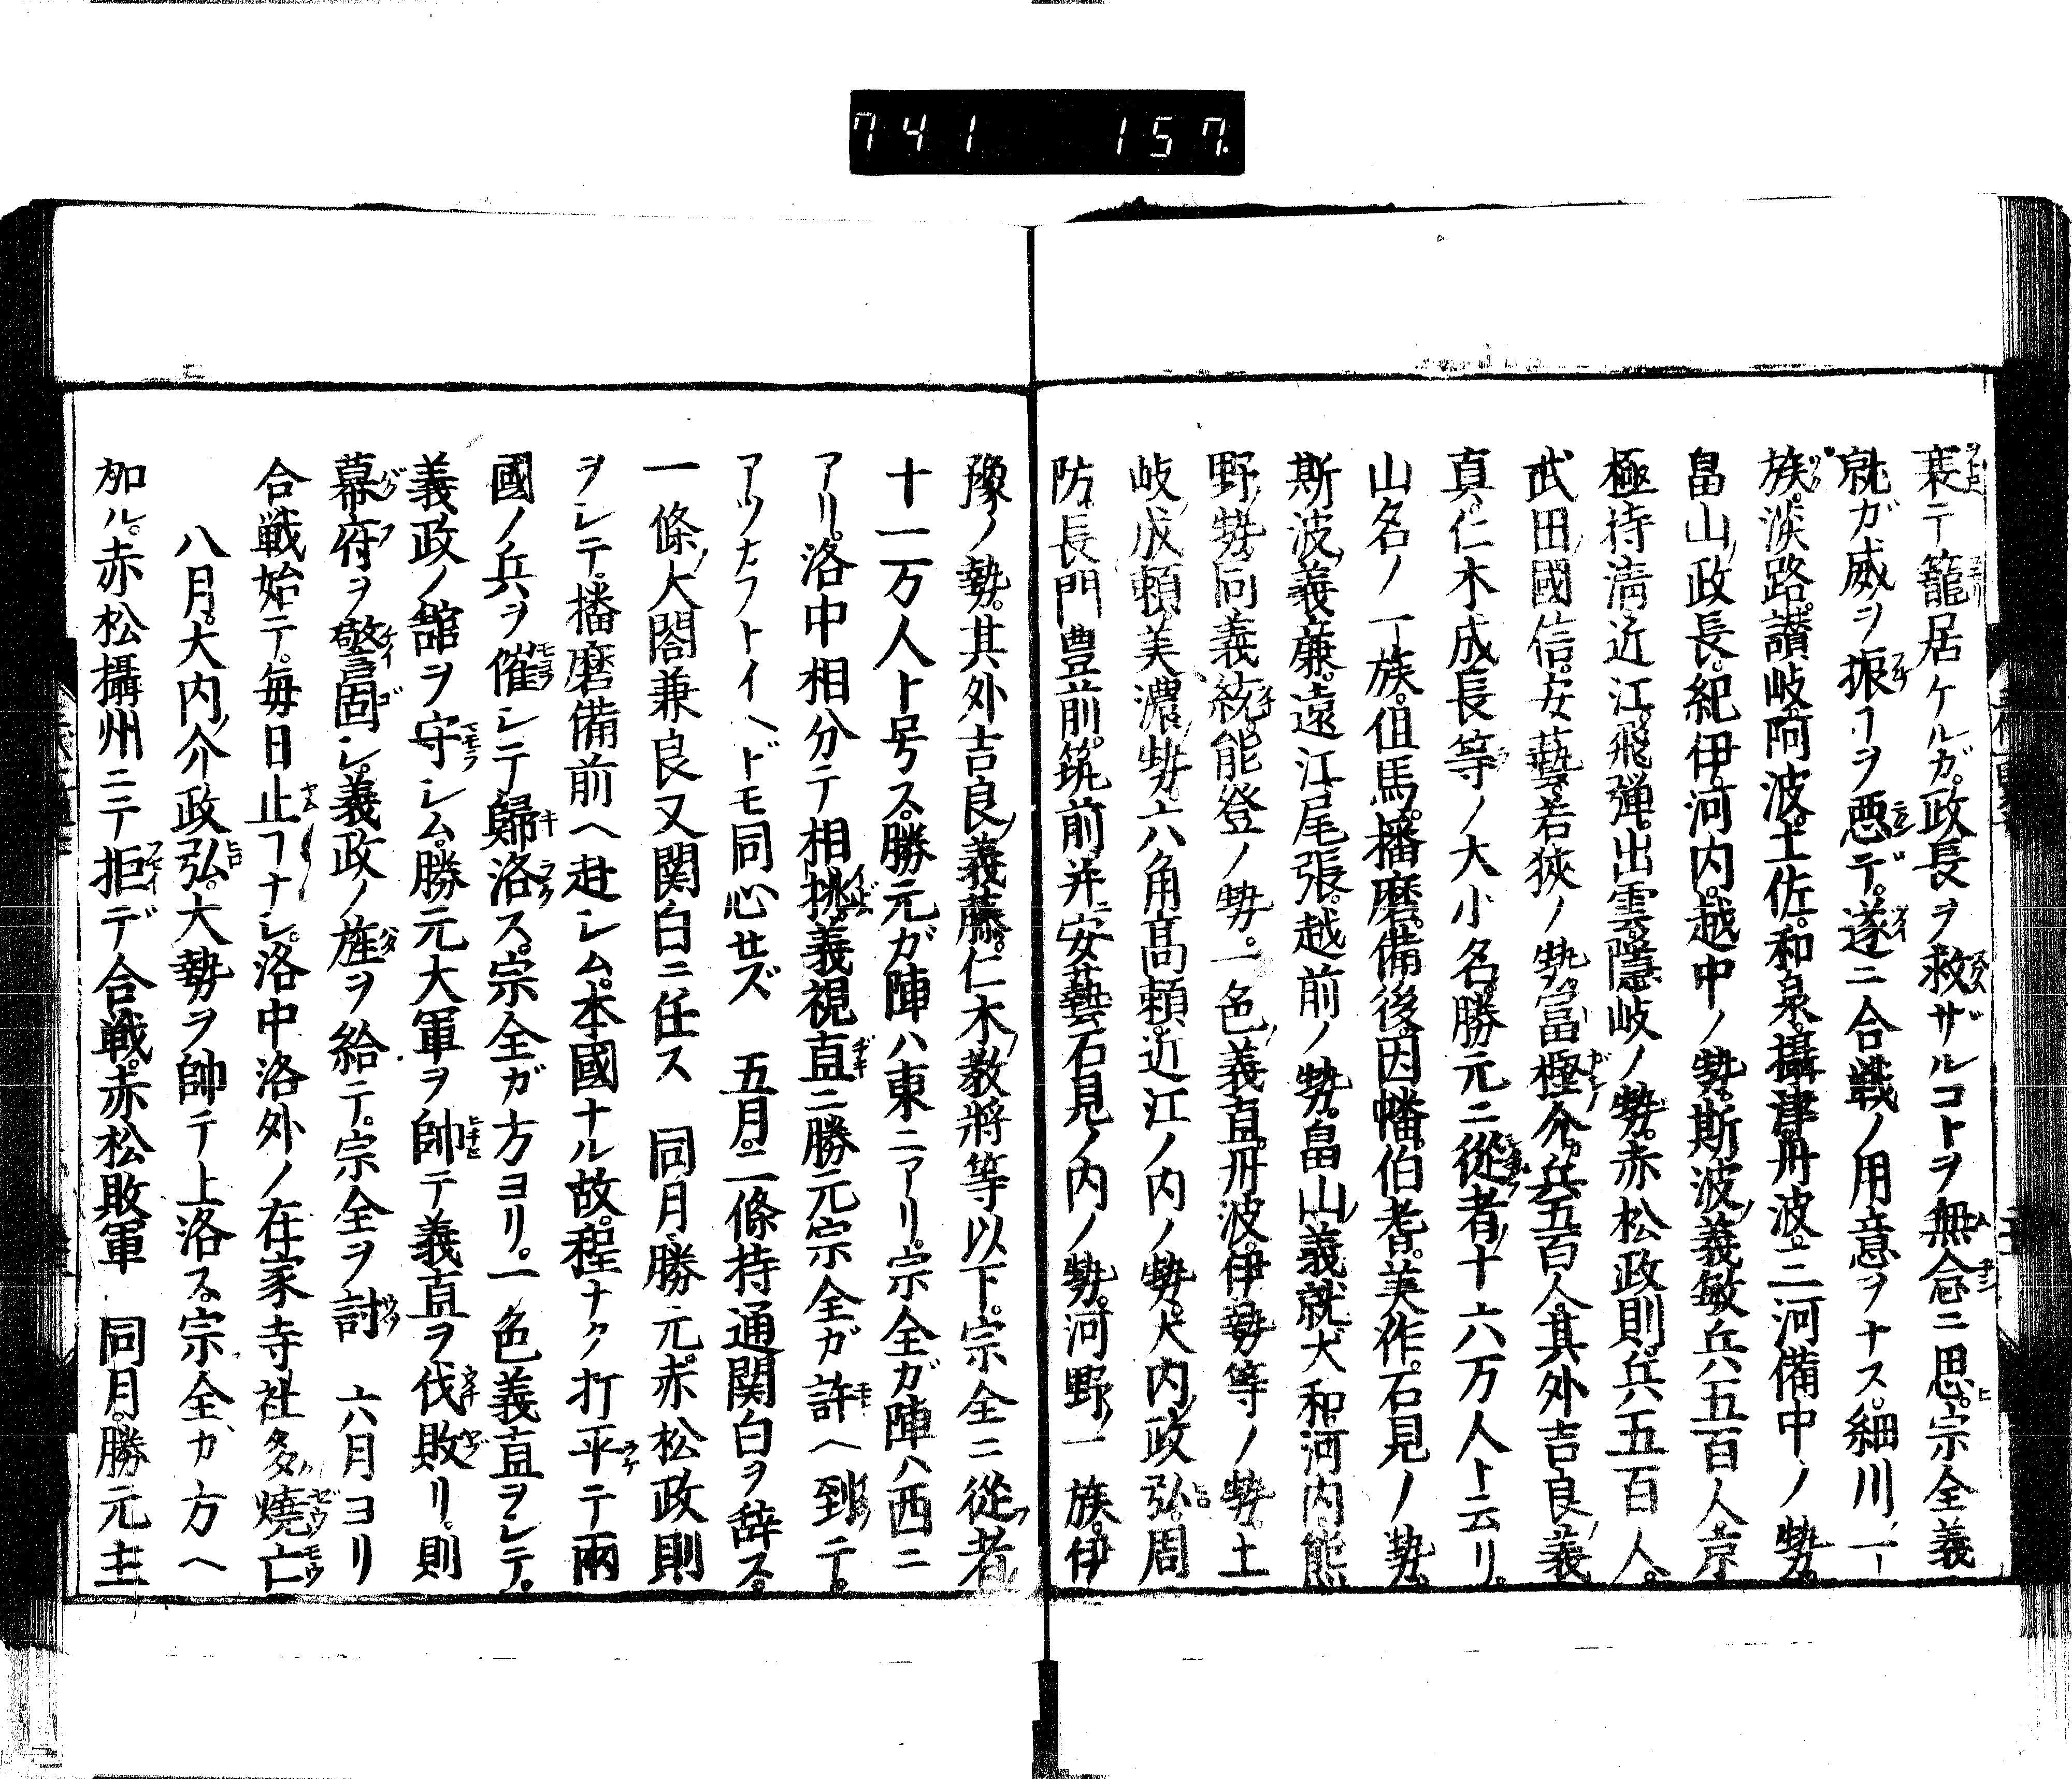 741 157
裹テ籠居ケルガ。政長ヲ救ザルコトヲ無念ニ思。宗全義
就ガ威ヲ振フヲ悪デ。遂ニ合戦ノ用意ヲナス。細川ノ一
族。淡路。讃岐。阿波。土佐。和泉。攝津。丹波。三河備中ノ勢。
畠山政長。紀伊。河内。越中ノ勢。斯波義敏兵五百人。京
極持清近江。飛弾。出雲。隠岐ノ勢。赤松政則。兵五百人。
武田國信。安藝。若狹ノ勢。富樫介兵五百人。其外吉良義
真。仁木成長等ノ大小名。勝元ニ從者十六万人ト云リ。
山名ノ一族。但馬。播磨。備後。因幡。伯耆。美作。石見ノ勢。
斯波義廉。遠江。尾張。越前ノ勢。畠山義就。大和。河内。熊
野ノ勢。同義統能登ノ勢。一色義直。丹波。伊勢等ノ勢。土
岐成頼。美濃勢。六角高頼。近江ノ内ノ勢。大内政弘。周
防。長門。豊前。筑前并安藝石見ノ内ノ勢。河野ノ一族。伊
豫ノ勢。其外吉良義藤。仁木教将等以下。宗全ニ從者
十一万人ト号ス。勝元ガ陣ハ東ニアリ。宗全ガ陣ハ西ニ
アリ。洛中相分テ相挑。義視直ニ勝元宗全ガ許ヘ到テ。
アツカフトイヘドモ同心セズ 五月。二條持通関白ヲ辞ス。
一條大閤兼良又関白ニ任ス 同月。勝元。赤松政則
ヲシテ。播磨備前ヘ赴シム。本國ナル故。程ナク打平テ兩
國ノ兵ヲ催シテ歸洛ス。宗全ガ方ヨリ。一色義直ヲシテ。
義政ノ舘ヲ守シム。勝元大軍ヲ帥テ義直ヲ伐敗リ。則
幕府ヲ警固シ。義政ノ旌ヲ給テ。宗全ヲ討 六月ヨリ
合戦始テ。毎日止フナシ。洛中洛外ノ在家寺社多ク燒亡
八月。大内介政弘。大勢ヲ帥テ上洛ス。宗全ガ方ヘ
加ル。赤松攝州ニテ拒デ合戦。赤松敗軍 同月。勝元主